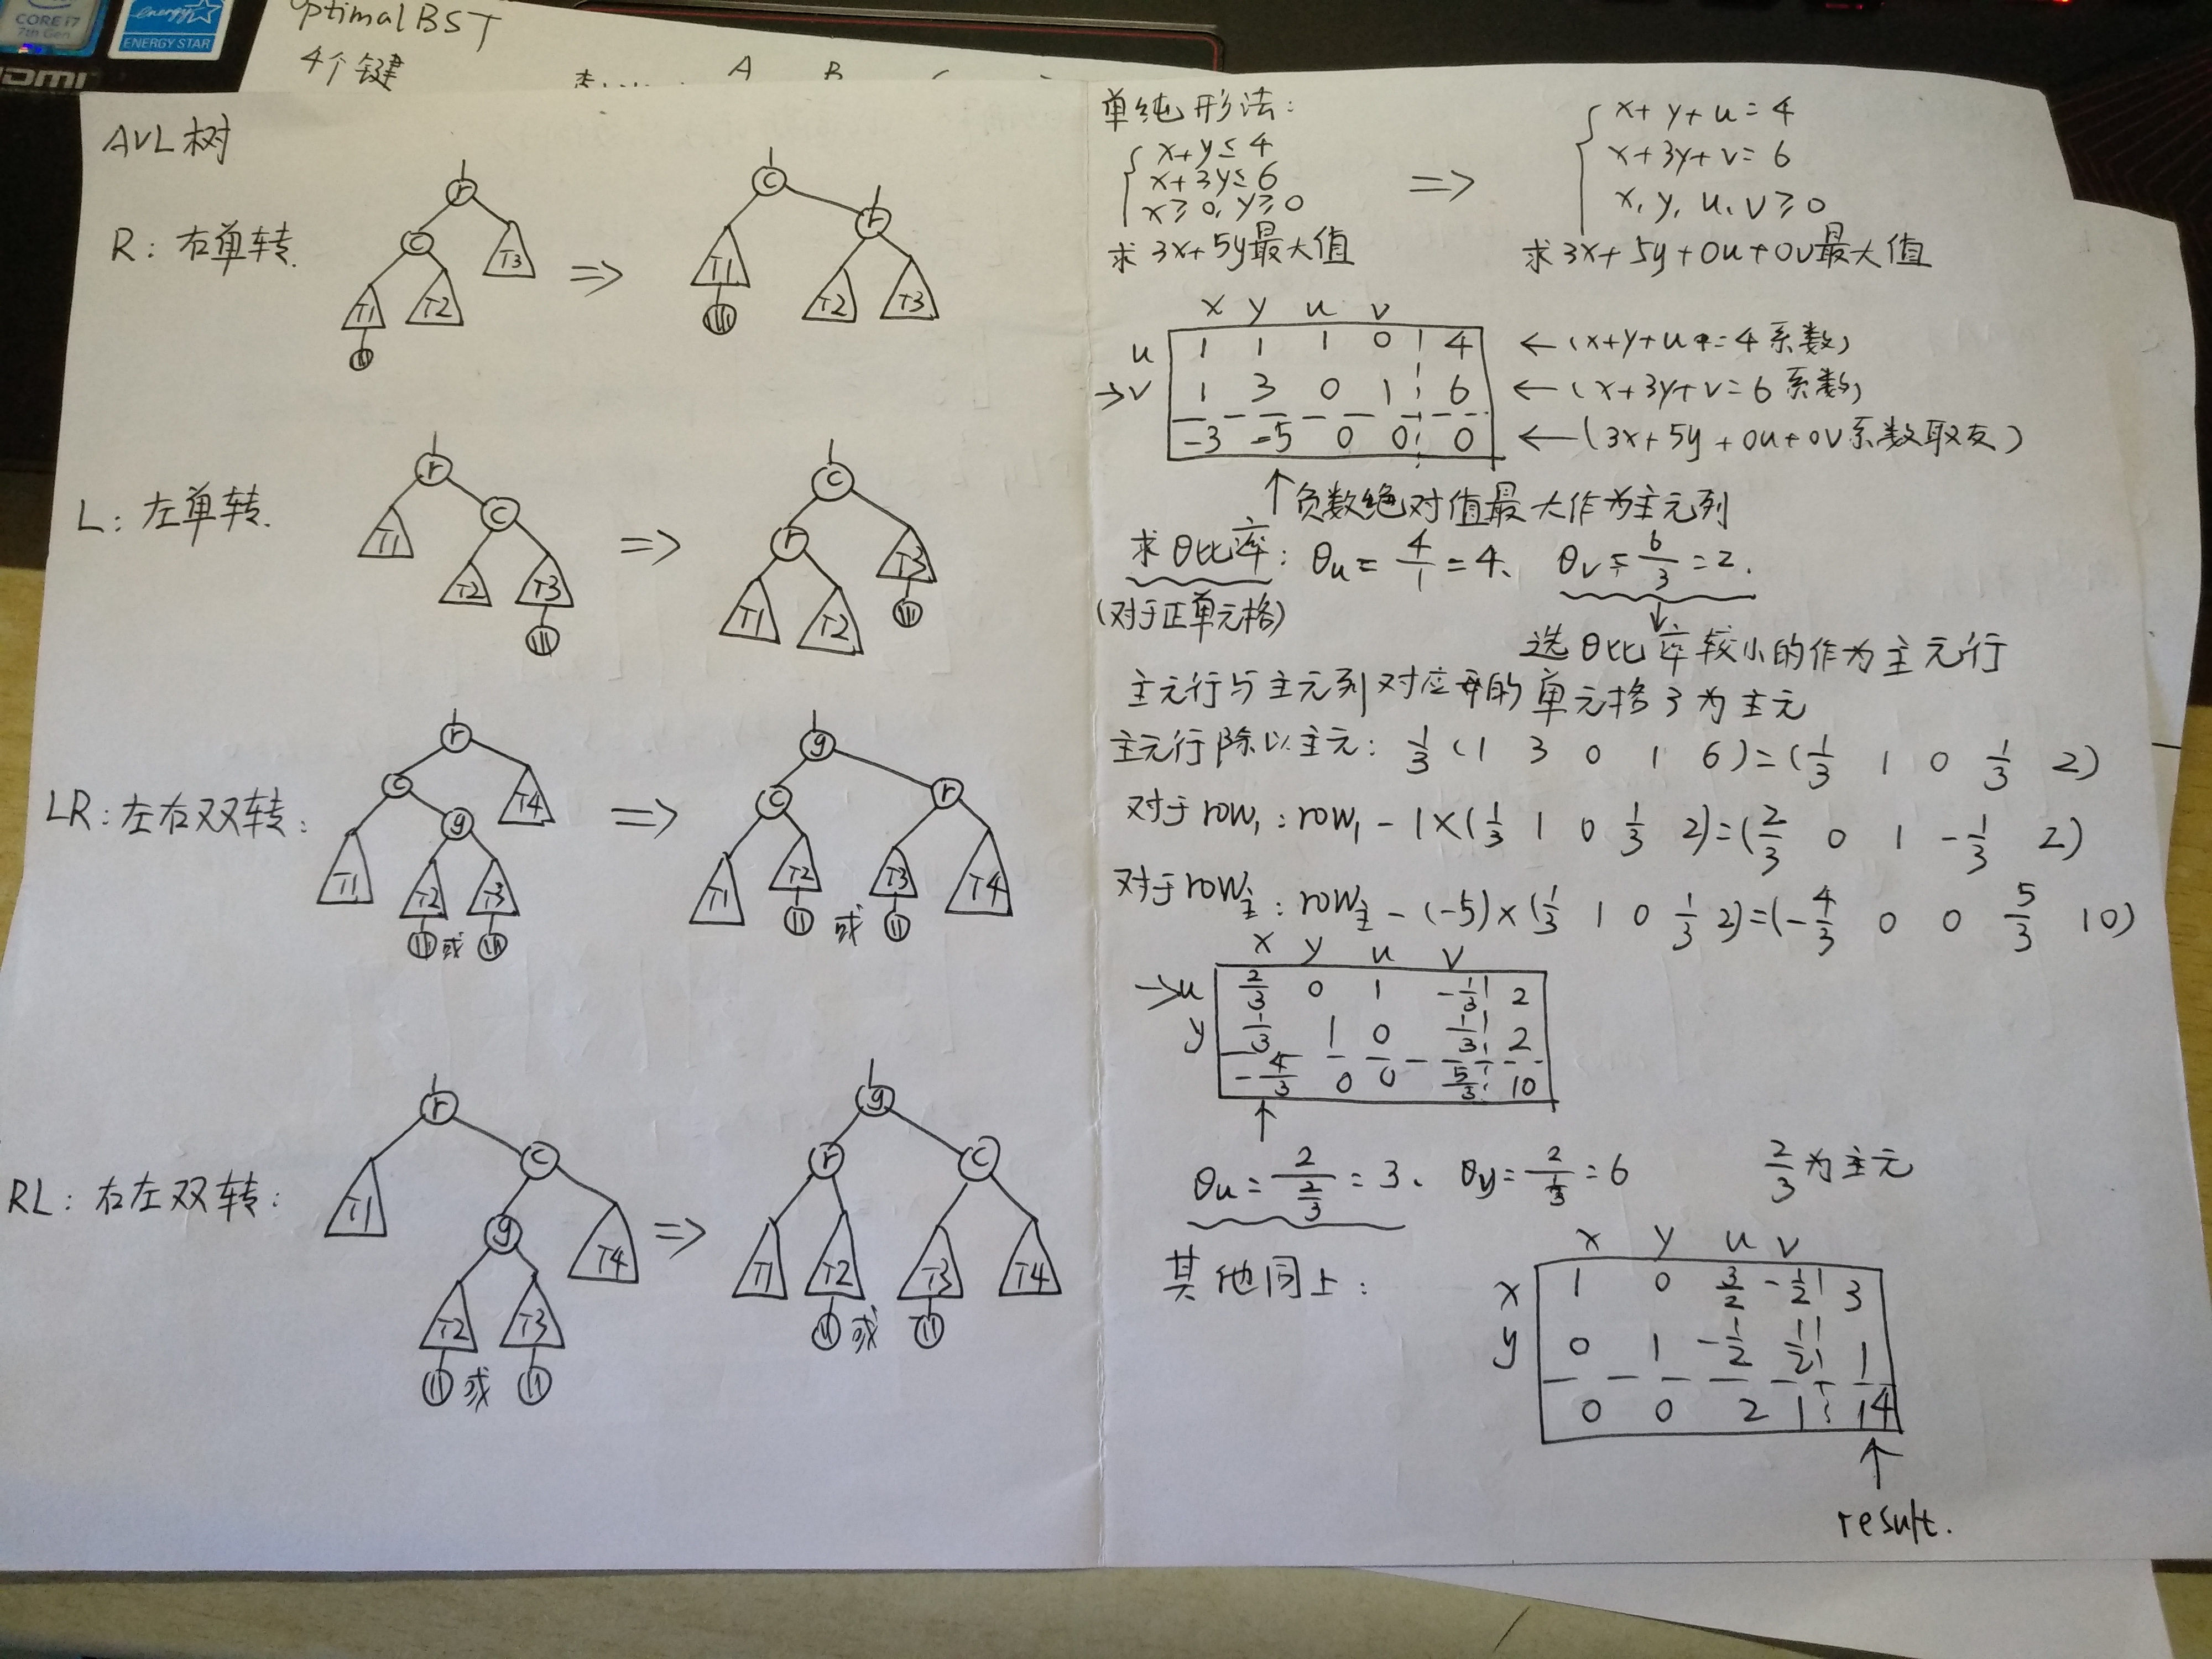 CORE i7
7th Gen
energy
ENERGY STAR
HDMI
optimal BST
4个键
A B
AVL树
R: 右单转.
r
c
T3
T1
T2
=>
c
r
T1
T2
T3
L: 左单转.
r
c
T1
T2
T3
=>
c
r
T3
T1
T2
LR: 左右双转:
r
c
T4
g
T1
T2
T3
或
=>
g
c
r
T1
T2
T3
T4
或
RL: 右左双转:
r
c
T1
g
T4
T2
T3
或
=>
g
r
c
T1
T2
T3
T4
或
单纯形法:
x+y≤4
x+3y≤6
x≥0, y≥0
求 3x+5y最大值
=>
x+y+u=4
x+3y+v=6
x, y, u, v≥0
求3x+5y+0u+0v最大值
x y u v
u 1 1 1 0 4 ←(x+y+u=4系数)
→v 1 3 0 1 6 ←(x+3y+v=6系数)
-3 -5 0 0 0 ←(3x+5y+0u+0v系数取反)
↑负数绝对值最大作为主元列
求θ比率: θu=4/1=4、 θv=6/3=2.
(对于正单元格)
↓
选θ比率较小的作为主元行
主元行与主元列对应的单元格3为主元
主元行除以主元: 1/3 (1 3 0 1 6)=(1/3 1 0 1/3 2)
对于row₁: row₁-1×(1/3 1 0 1/3 2)=(2/3 0 1 -1/3 2)
对于row主: row主-(-5)×(1/3 1 0 1/3 2)=(-4/3 0 0 5/3 10)
x y u v
→u 2/3 0 1 -1/3 2
y 1/3 1 0 1/3 2
-4/3 0 0 5/3 10
↑
θu=2/(2/3)=3、 θy=2/(1/3)=6 2/3为主元
其他同上:
x y u v
x 1 0 3/2 -1/2 3
y 0 1 -1/2 1/2 1
0 0 2 1 14
↑
result.